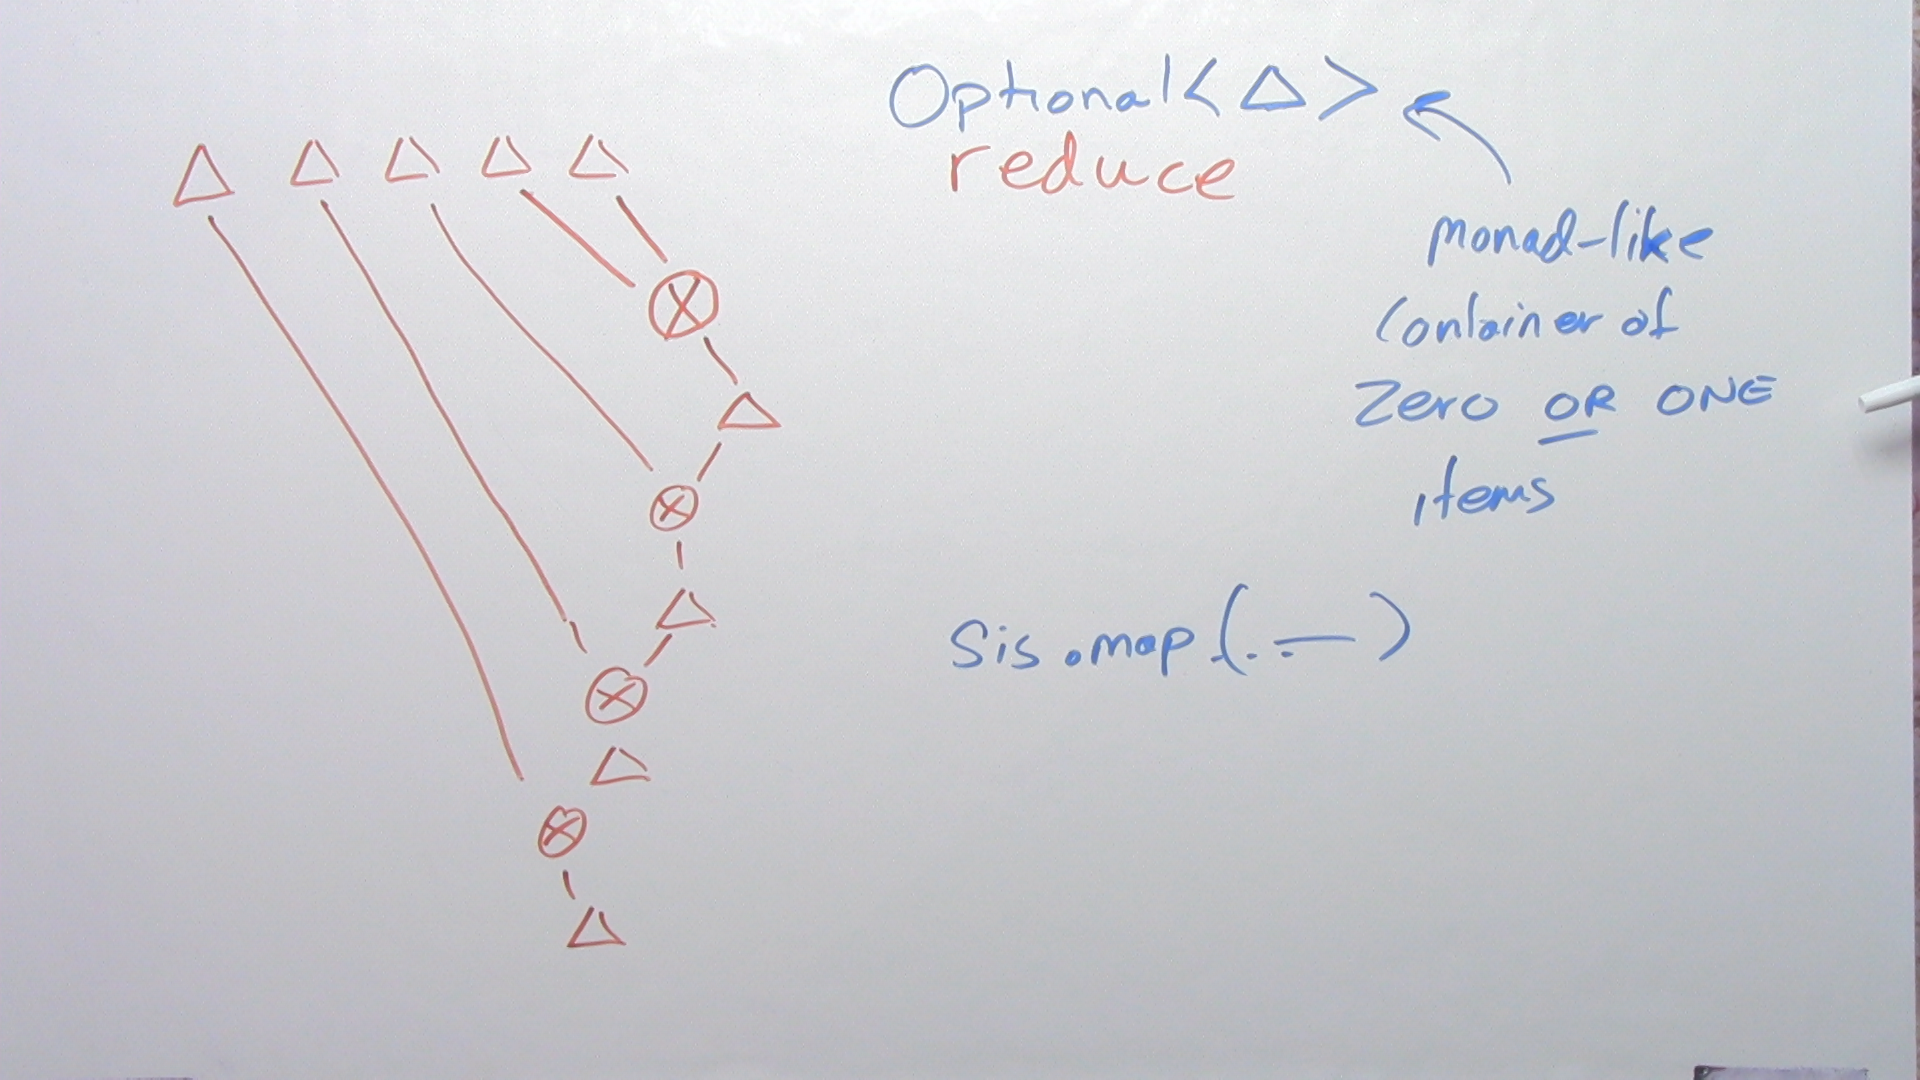 Optional<△>
reduce
monad-like
Container of
Zero OR ONE
items
Sis.map(.:—)